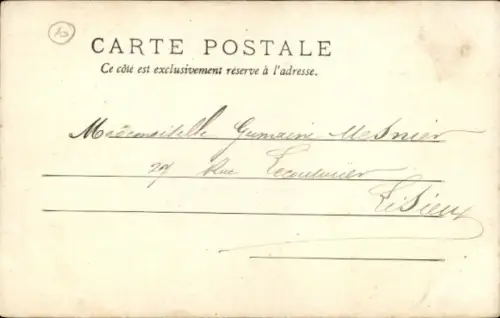 10
CARTE POSTALE
Ce côté est exclusivement réservé à l'adresse.
Mademoiselle Germaine Mesnier
27 Rue
Lisieux